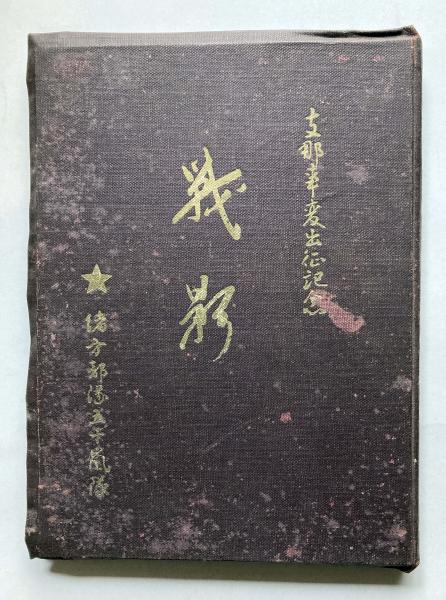 支那事変出征記念
戦影
緒方部隊五十嵐隊